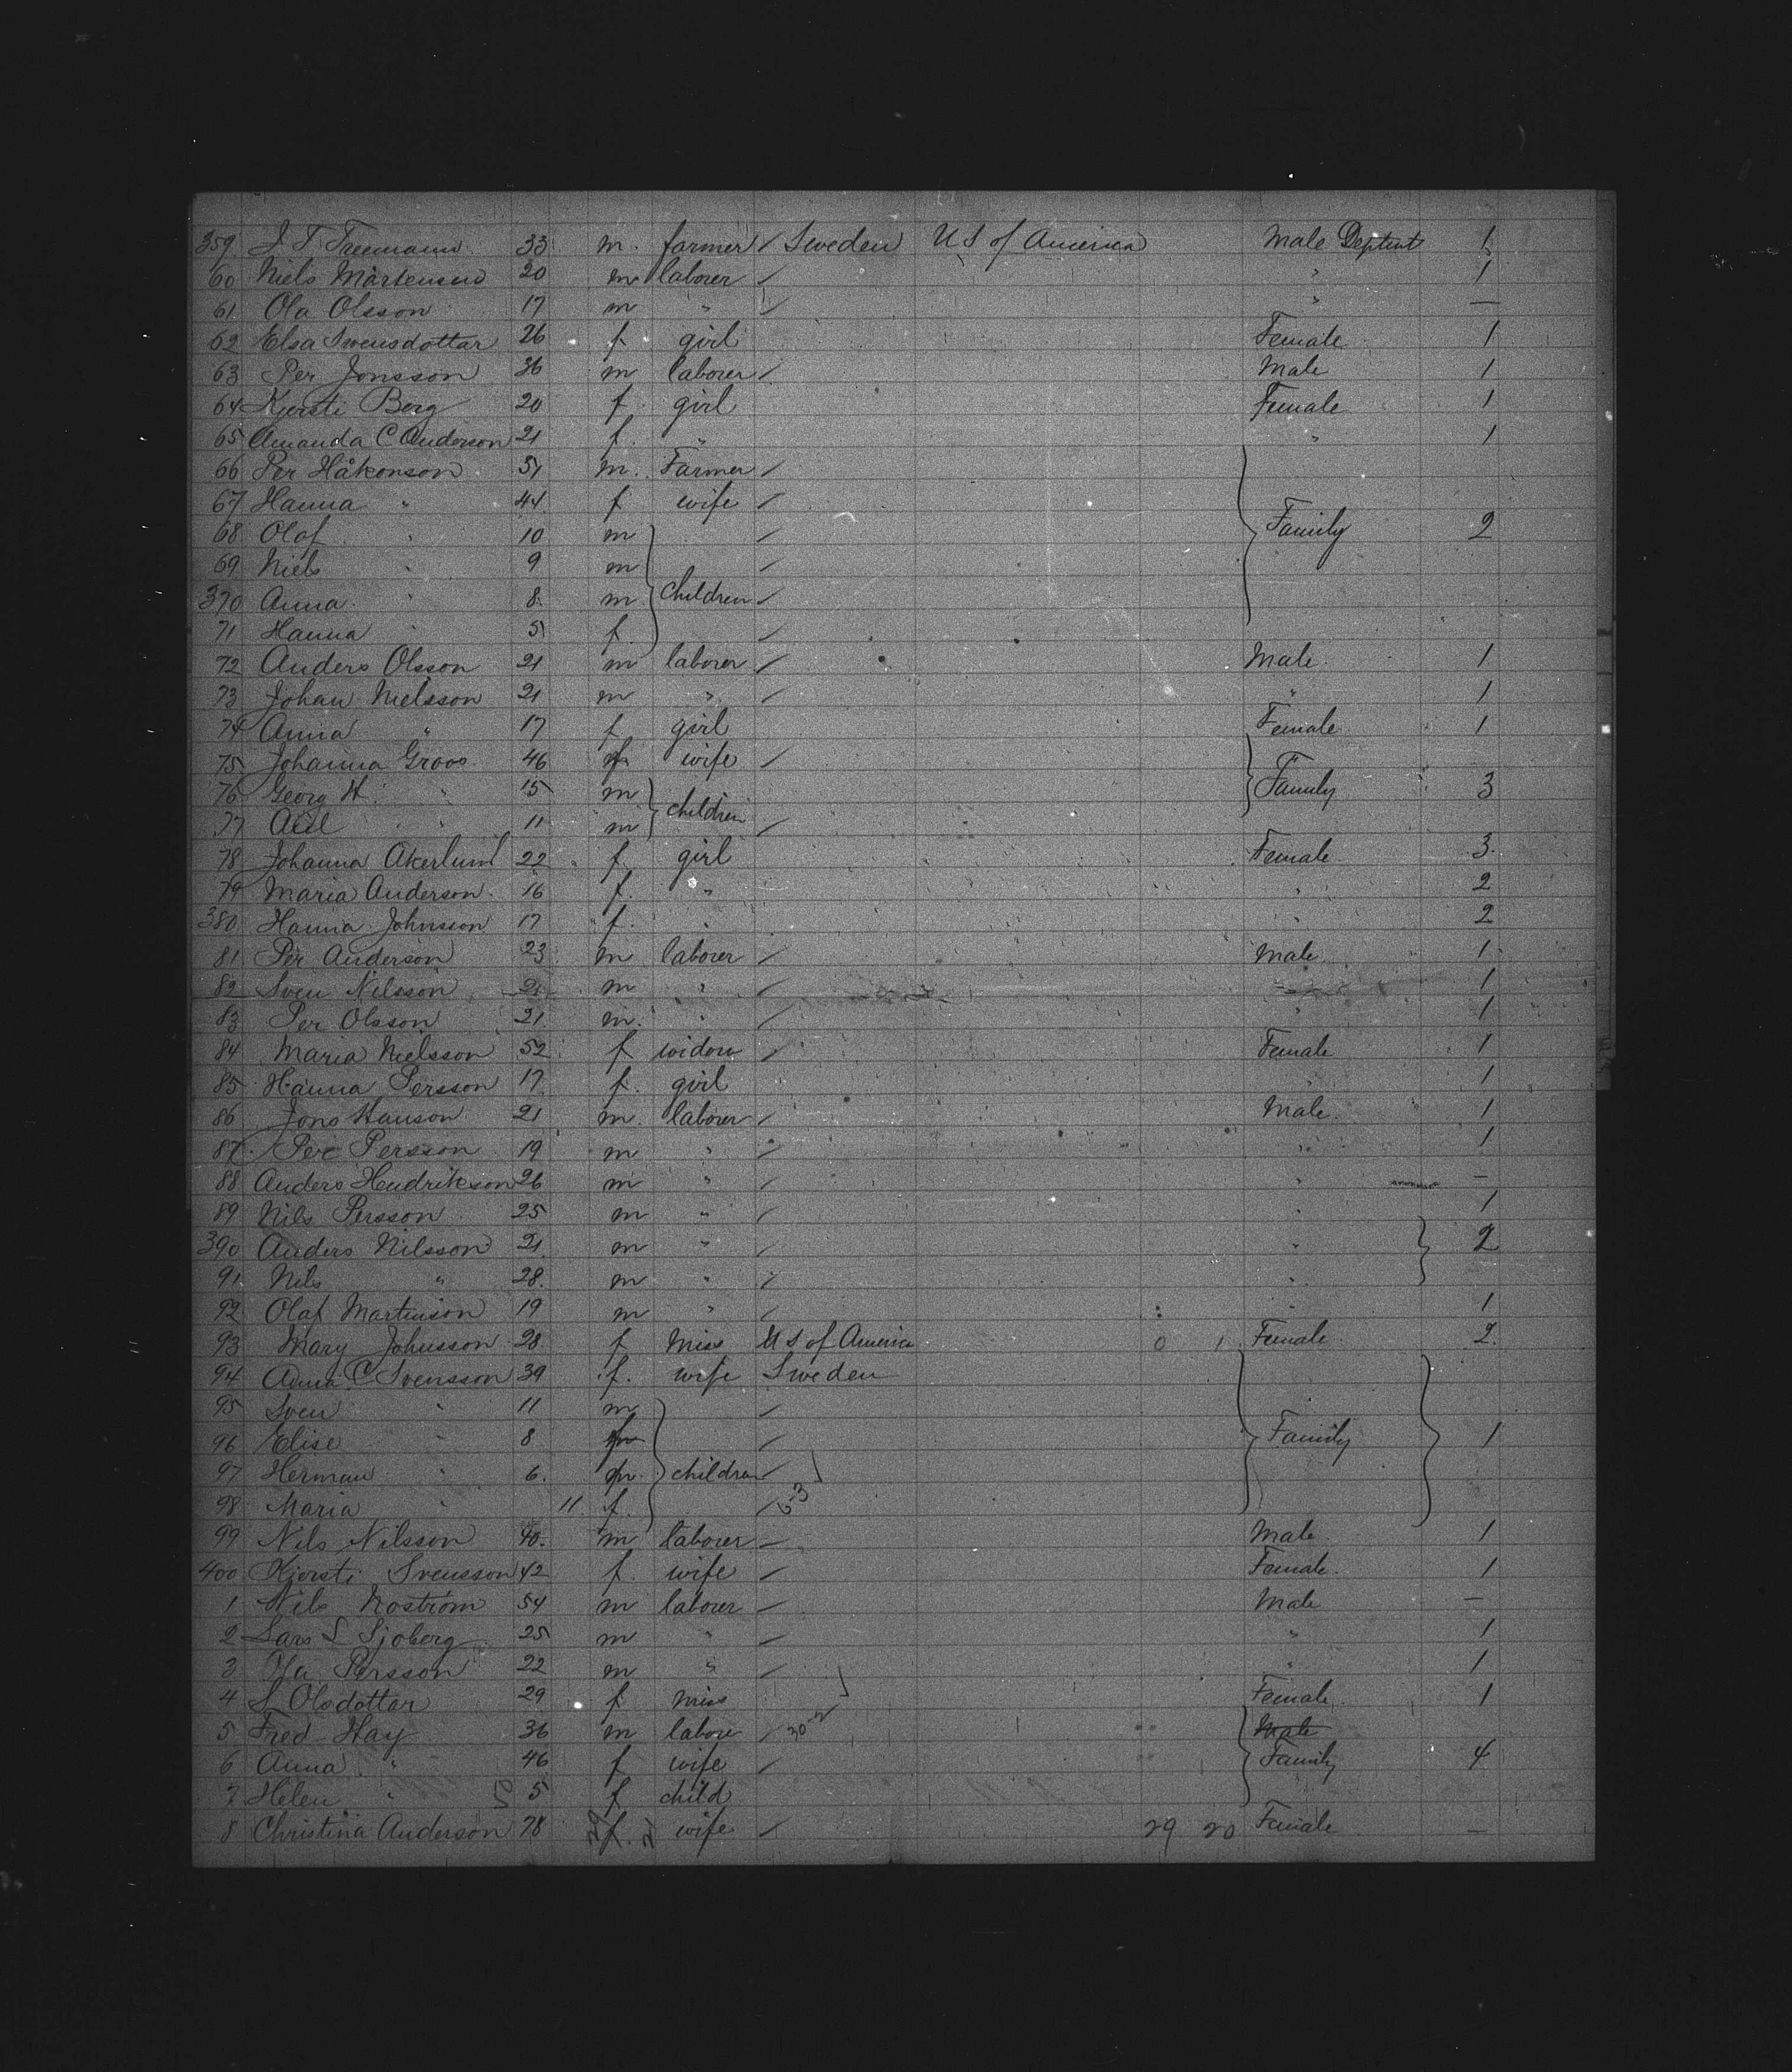 359 J. F. Treemann 33 m. farmer / Sweden US of America Male Deptmt 1
60 Niels Mårtensen 20 m laborer / " 1
61 Ola Olsson 17 m " / " —
62 Elsa Svensdottar 26 f girl Female 1
63 Per Jonsson 36 m laborer / Male 1
64 Kjersti Berg 20 f. girl Female 1
65 Amanda C Anderson 21 f. " " 1
66 Per Håkonson 51 m. Farmer /
67 Hanna " 44 f wife /
68 Olaf " 10 m / Family 2
69 Niels " 9 m /
370 Anna " 8 m children /
71 Hanna " 5 f /
72 Anders Olsson 21 m laborer / Male 1
73 Johan Nielsson 21 m " / " 1
74 Anna " 17 f girl Female 1
75 Johanna Groos 46 f wife /
76 Georg H. " 15 m children Family 3
77 Axel " 11 m /
78 Johanna Akerlund 22 f. girl Female 3
79 Maria Anderson 16 f. " " 2
380 Hanna Johnsson 17 f. " " 2
81 Per Anderson 23 m laborer / Male 1
82 Sven Nilsson 21 m " / " 1
83 Per Olsson 21 m. " / " 1
84 Maria Nielsson 52 f widow / Female 1
85 Hanna Persson 17 f. girl " 1
86 Jons Hanson 21 m. laborer / Male 1
87 Per Persson 19 m " / " 1
88 Anders Hendrikson 26 m " / " —
89 Nils Persson 25 m " / " 1
390 Anders Nilsson 21 m " / " 2
91 Nils " 28 m " / "
92 Olaf Martinson 19 m " / " 1
93 Mary Johnsson 28 f Miss US of America 0 1 Female 2
94 Anna C Svensson 39 f. wife Sweden
95 Sven " 11 m /
96 Elise " 8 f / Family 1
97 Herman " 6 m. children /
98 Maria " 11 f. / 63
99 Nils Nilsson 40 m laborer / Male 1
400 Kjersti Svensson 42 f. wife / Female 1
1 Nils Noström 54 m laborer / Male —
2 Lars S Sjoberg 25 m " / " 1
3 Ola Persson 22 m " / " 1
4 S Olsdottar 29 f miss Female 1
5 Fred Hay 36 m labore / 30-2 Male
6 Anna " 46 f wife / Family 4
7 Helen " 5 f child
8 Christina Anderson 78 f. wife / 29 20 Female —